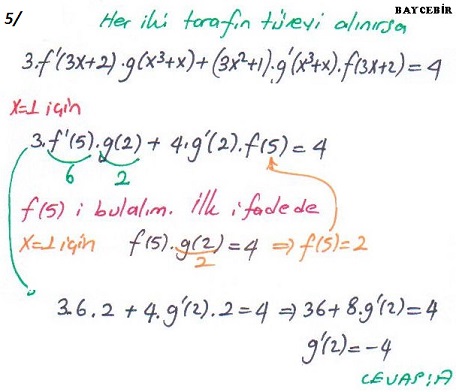 BAYCEBİR
5/ Her iki tarafın türevi alınırsa
3.f'(3x+2).g(x³+x)+(3x²+1).g'(x³+x).f(3x+2)=4
x=1 için
3.f'(5).g(2)+4.g'(2).f(5)=4
6 2
f(5) i bulalım. İlk ifadede
x=1 için f(5).g(2)=4 ⇒ f(5)=2
2
3.6.2+4.g'(2).2=4 ⇒ 36+8.g'(2)=4
g'(2)=-4
CEVAP:A